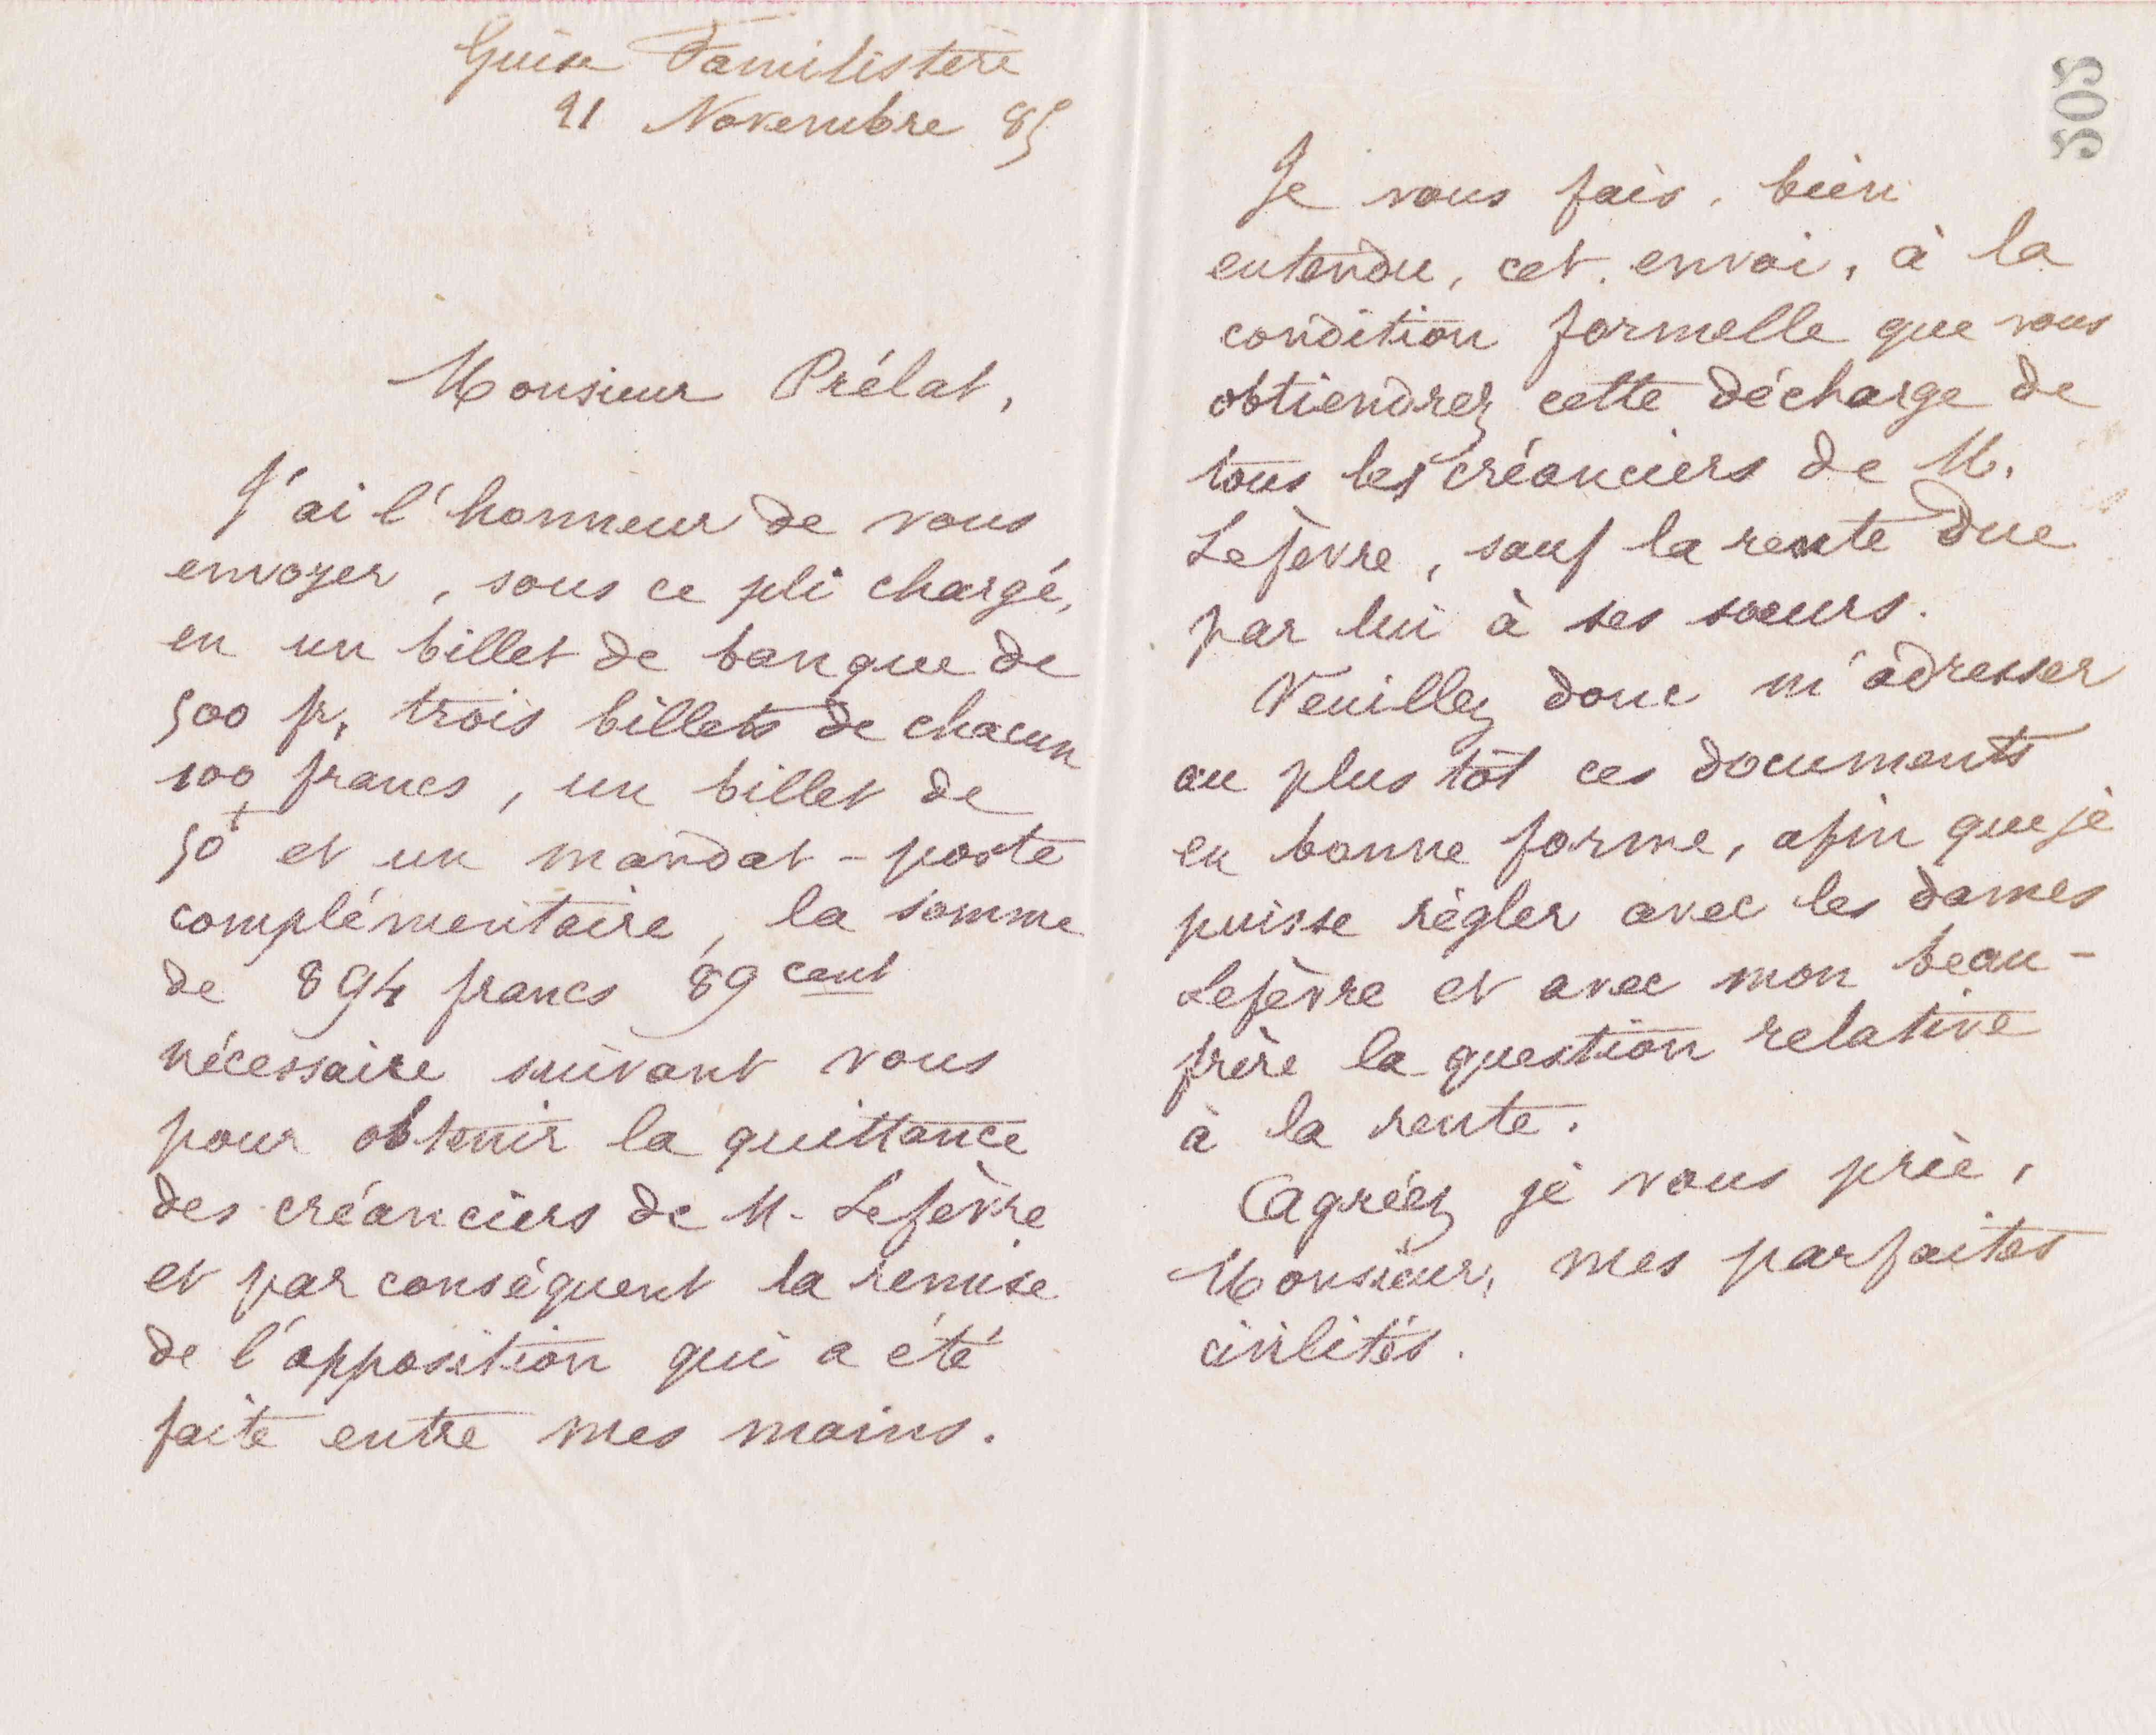 Guise Familistère
21 Novembre 85
Monsieur Prélat,
J'ai l'honneur de vous
envoyer, sous ce pli chargé,
en un billet de banque de
500 fr, trois billets de chacun
100 francs, un billet de
50f et un mandat-poste
complémentaire, la somme
de 894 francs 89 cent
nécessaire suivant vous
pour obtenir la quittance
des créanciers de M. Lefèvre
et par conséquent la remise
de l'opposition qui a été
faite entre mes mains.
505
Je vous fais, bien
entendu, cet envoi, à la
condition formelle que vous
obtiendrez cette décharge de
tous les créanciers de M.
Lefèvre, sauf la rente due
par lui à ses soeurs.
Veuillez donc m'adresser
au plus tôt ces documents
en bonne forme, afin que je
puisse régler avec les dames
Lefèvre et avec mon beau-
frère la question relative
à la rente.
Agréez je vous prie,
Monsieur, mes parfaites
civilités.